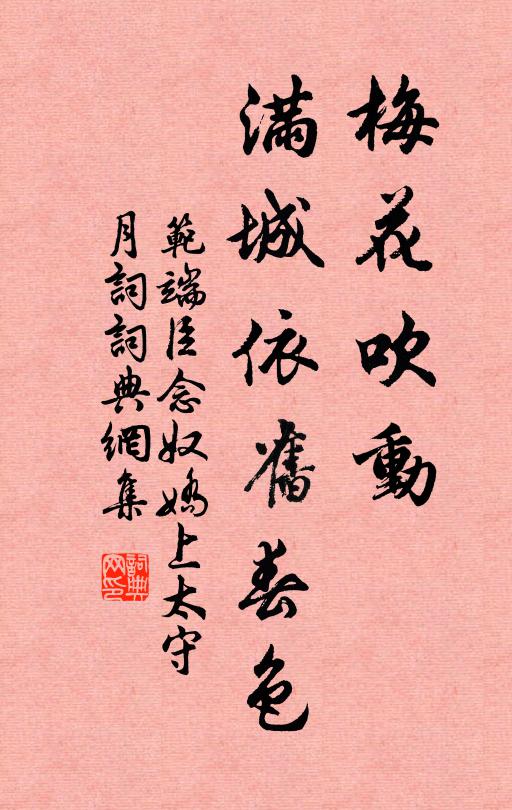 梅花吹動
滿城依舊春色
範端臣念奴嬌上太守
月詞詞典網集
詞典
网印